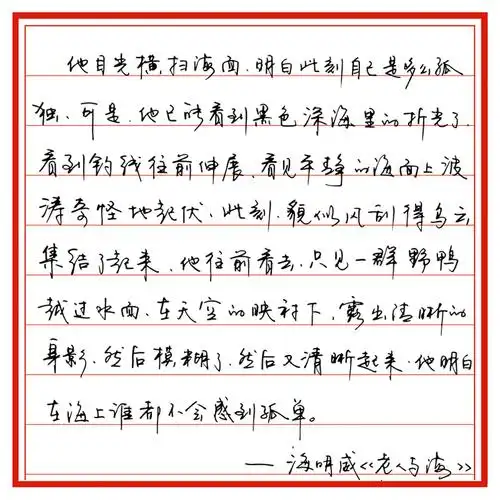 他目光横扫海面,明白此刻自己是多么孤
独,可是,他已能看到黑色深海里的折光了,
看到钓线往前伸展,看见平静的海面上波
涛奇怪地起伏,此刻,貌似风刮得乌云
集结了起来,他往前看去,只见一群野鸭
越过水面,在天空的映衬下,露出清晰的
身影,然后模糊了,然后又清晰起来,他明白
在海上谁都不会感到孤单。
—— 海明威《老人与海》